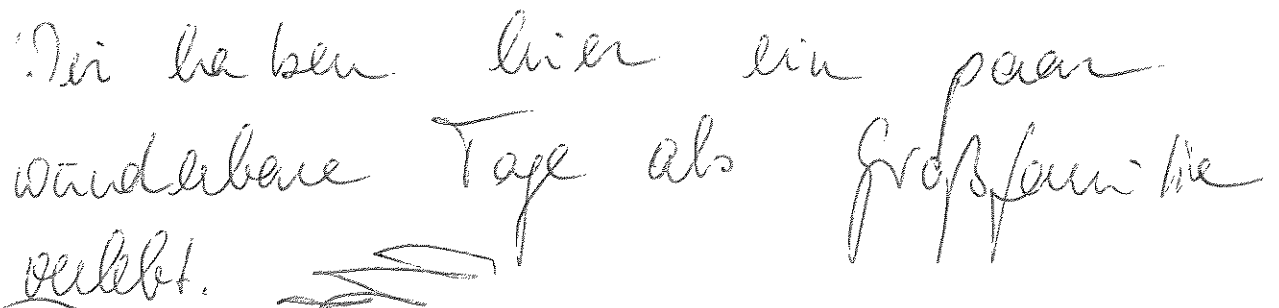 Wir haben hier ein paar
wunderbare Tage als Großfamilie
verlebt.